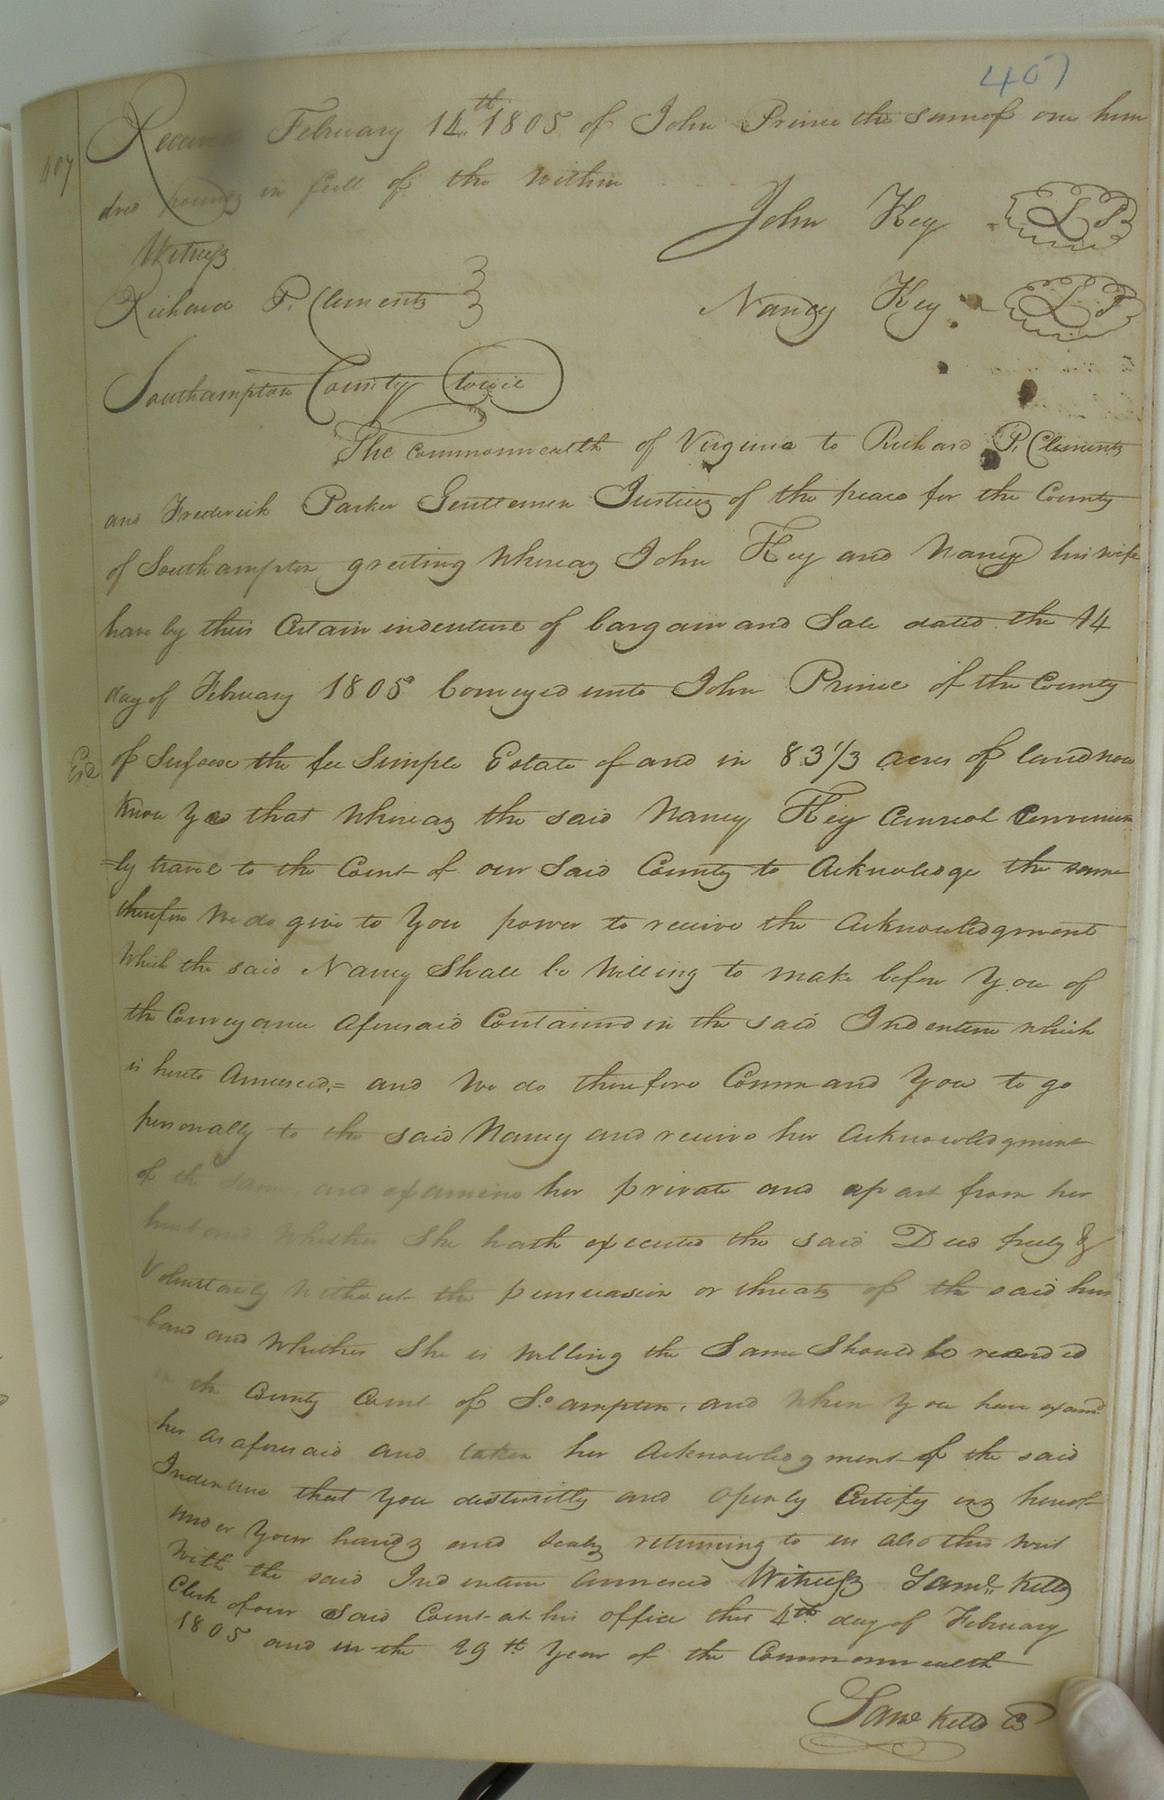 407
407
Received February 14th 1805 of John Prince the sum of one hun
dred pounds in full of the within
John Key LS
Witness
Richard P. Clements
Nancy Key LS
Southampton County towit
The Commonwealth of Virginia to Richard P. Clements
and Frederick Parker Gentlemen Justices of the peace for the County
of Southampton greeting Whereas John Key and Nancy his wife
have by their Certain indenture of bargain and Sale dated the 14
day of February 1805 Conveyed unto John Prince of the County
Exd of Sussex the fee Simple Estate of and in 83 1/3 acres of land now
know Yee that Whereas the said Nancy Key Cannot Convenien
=ly travel to the Court of our Said County to Acknowledge the same
therefore We do give to You power to receive the Acknowledgment
Which the said Nancy Shall be Willing to make before You of
the Conveyance Aforesaid Contained in the said Indenture which
is hereto Annexed,= and We do therefore Command You to go
personally to the said Nancy and receive her Acknowledgment
of the same and examine her private and apart from her
husband Whether She hath executed the said Deed freely &
Voluntarily Without the persuasion or threats of the said hus
band and Whether She is Willing the Same Should be recorded
in the County Court of So. ampton, and When You have examd
her As aforesaid and taken her Acknowledgment of the said
Indenture that You distinctly and openly Certify us hereof
under Your hands and seals returning to us also this writ
With the said Indenture annexed Witness Saml. Kello
Clerk of our Said Court at his office this 4th day of February
1805 and in the 29th. Year of the Commonwealth
Saml Kello